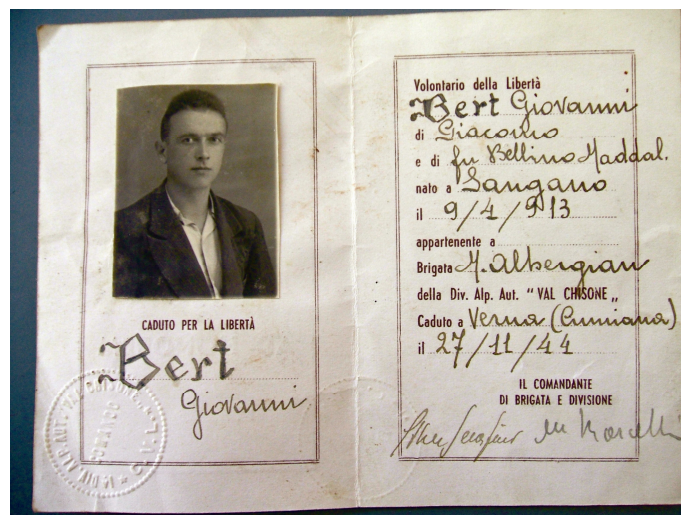 CADUTO PER LA LIBERTÀ
Bert
Giovanni
Volontario della Libertà
Bert Giovanni
di Giacomo
e di fu Bellino Maddal.
nato a Sangano
il 9/4/913
appartenente a
Brigata M. Albergian
della Div. Alp. Aut. “VAL CHISONE„
Caduto a Verna (Cumiana)
il 27/11/44
IL COMANDANTE
DI BRIGATA E DIVISIONE